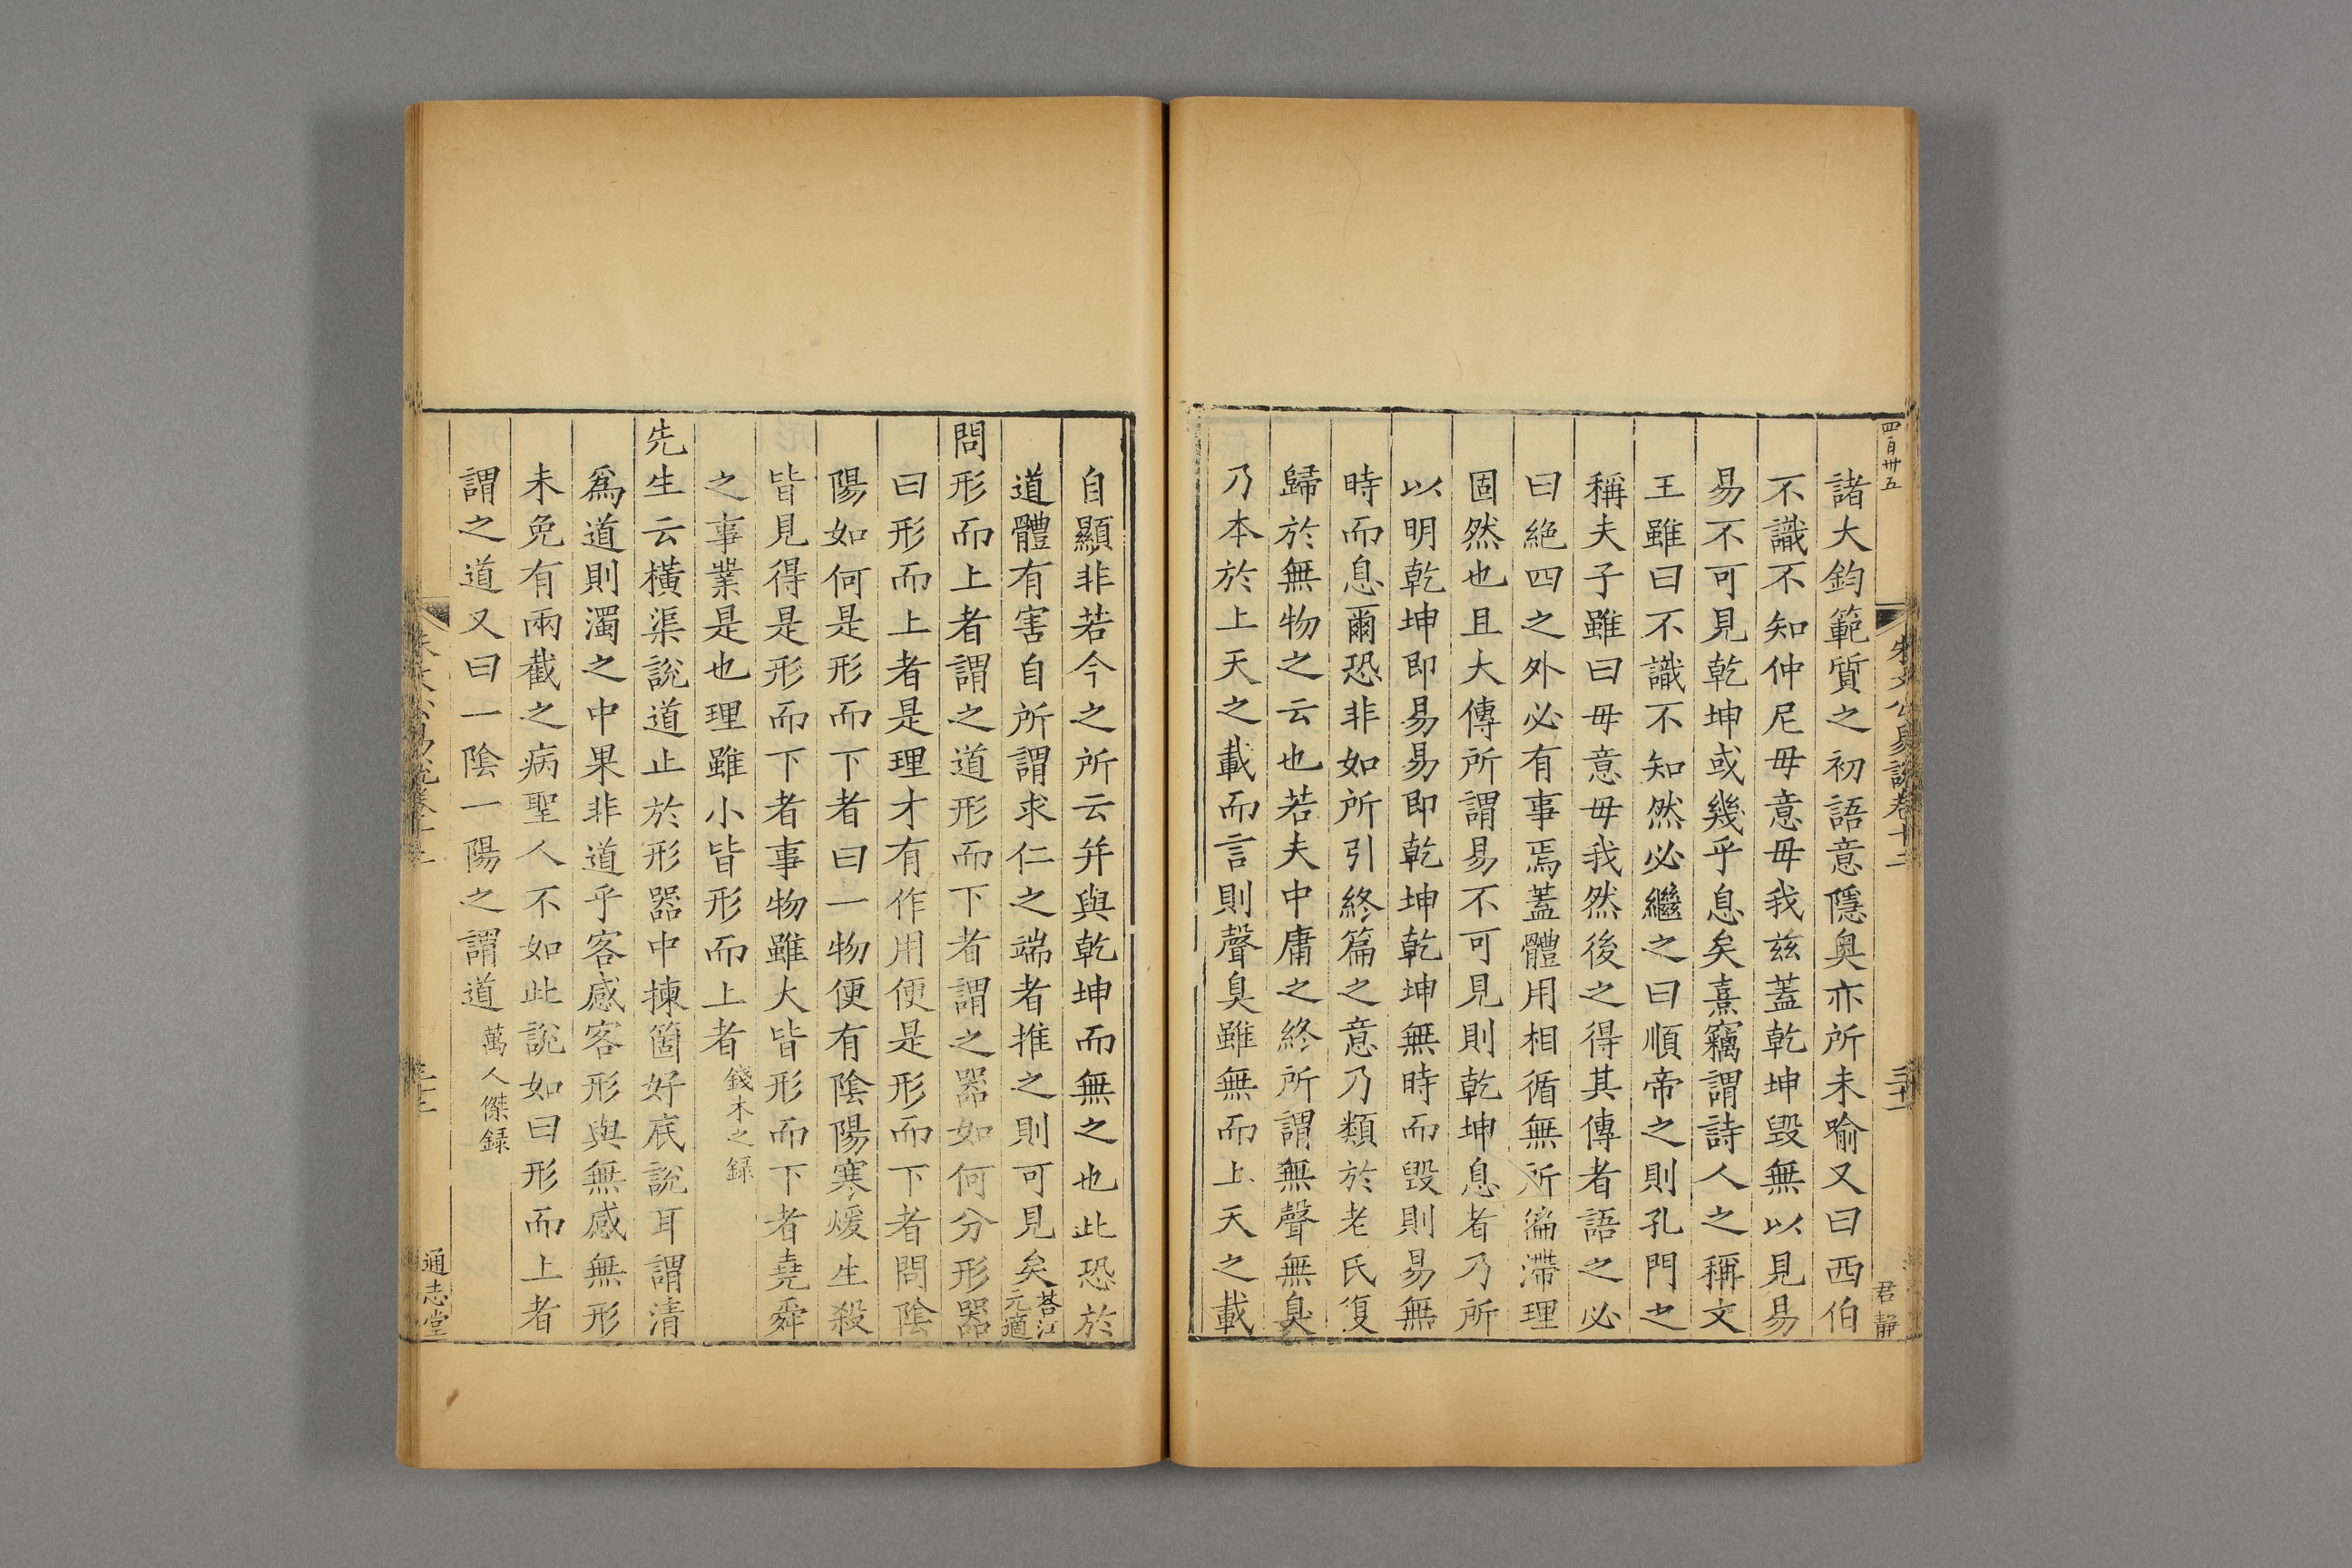 四百卅五
朱文公易說卷十二
君靜
諸大鈞範質之初語意隱奧亦所未喻又曰西伯
不識不知仲尼毋意毋我兹蓋乾坤毀無以見易
易不可見乾坤或幾乎息矣熹竊謂詩人之稱文
王雖曰不識不知然必繼之曰順帝之則孔門之
稱夫子雖曰毋意毋我然後之得其傳者語之必
曰絕四之外必有事焉蓋體用相循無所徧滯理
固然也且大傳所謂易不可見則乾坤息者乃所
以明乾坤即易易即乾坤乾坤無時而毀則易無
時而息爾恐非如所引終篇之意乃類於老氏復
歸於無物之云也若夫中庸之終所謂無聲無臭
乃本於上天之載而言則聲臭雖無而上天之載
自顯非若今之所云并與乾坤而無之也此恐於
道體有害自所謂求仁之端者推之則可見矣荅江元適
問形而上者謂之道形而下者謂之器如何分形器
曰形而上者是理才有作用便是形而下者問陰
陽如何是形而下者曰一物便有陰陽寒煖生殺
皆見得是形而下者事物雖大皆形而下者堯舜
之事業是也理雖小皆形而上者錢木之録
先生云橫渠說道止於形器中揀箇好底說耳謂清
爲道則濁之中果非道乎客感客形與無感無形
未免有兩截之病聖人不如此說如曰形而上者
謂之道又曰一陰一陽之謂道萬人傑録
通志堂